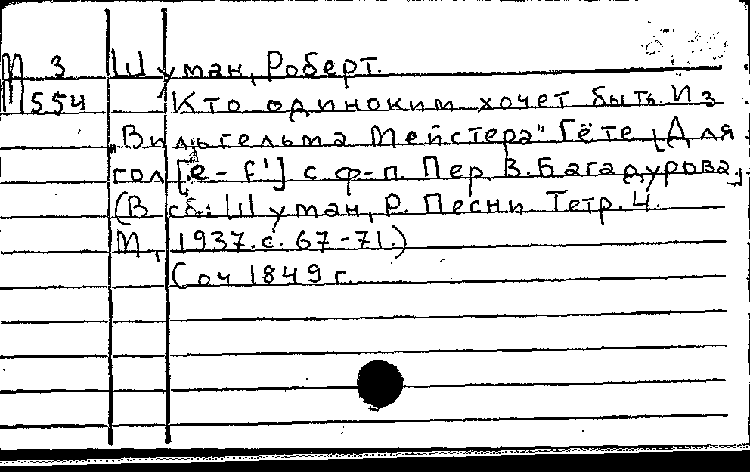 М 3 Шуман, Роберт.
М554 Кто одиноким хочет быть. Из
"Вильгельма Мейстера" Гёте [Для
гол [e - f'] с ф-п. Пер. В. Багадурова]
(В сб: Шуман, Р. Песни Тетр. 4.
М, 1937. с. 67-71.)
Соч 1849 г.